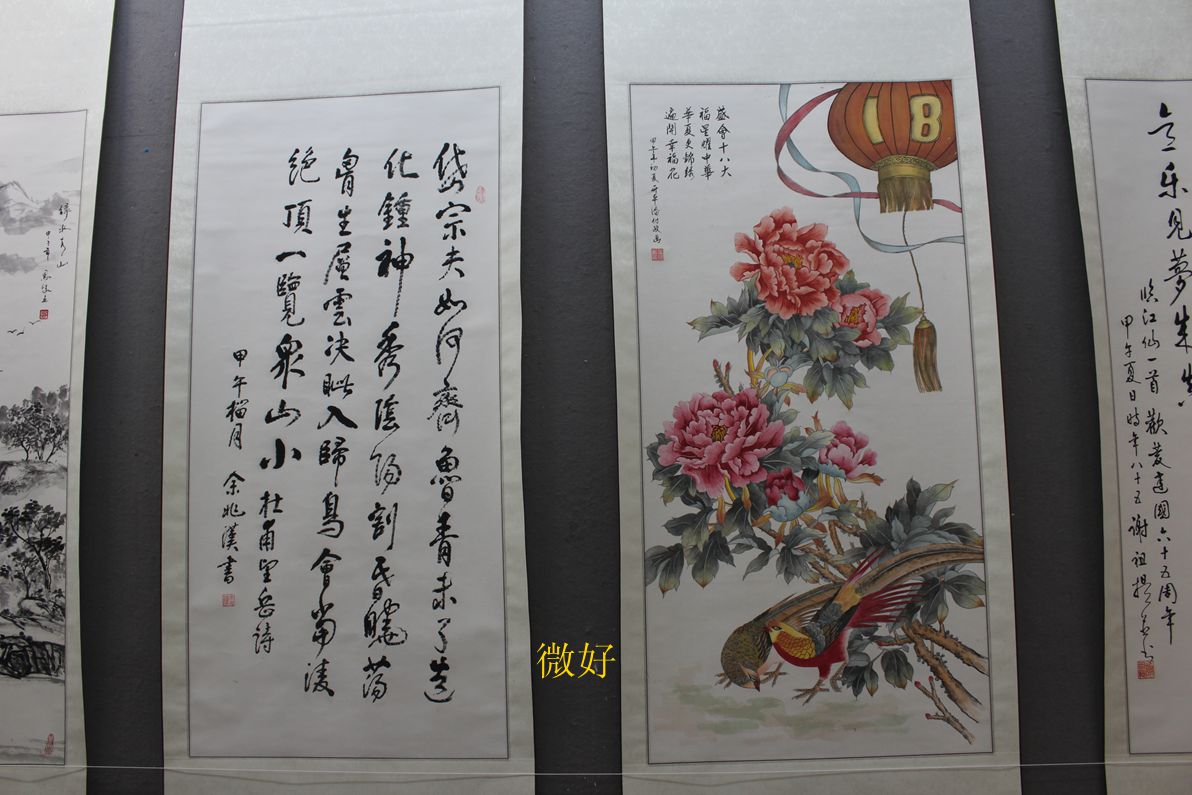 岱宗夫如何齊魯青未了造
化鍾神秀陰陽割昏曉蕩
胷生層雲決眦入歸鳥會當凌
絕頂一覽衆山小 杜甫望岳詩
甲午榴月 余兆漢書
微好
盛會十八大
福星耀中華
華夏更錦綉
遍開幸福花
甲午年初夏
18
乐见夢成真
臨江仙一首歡慶建國六十五周年
甲午夏日時年八十五謝祖